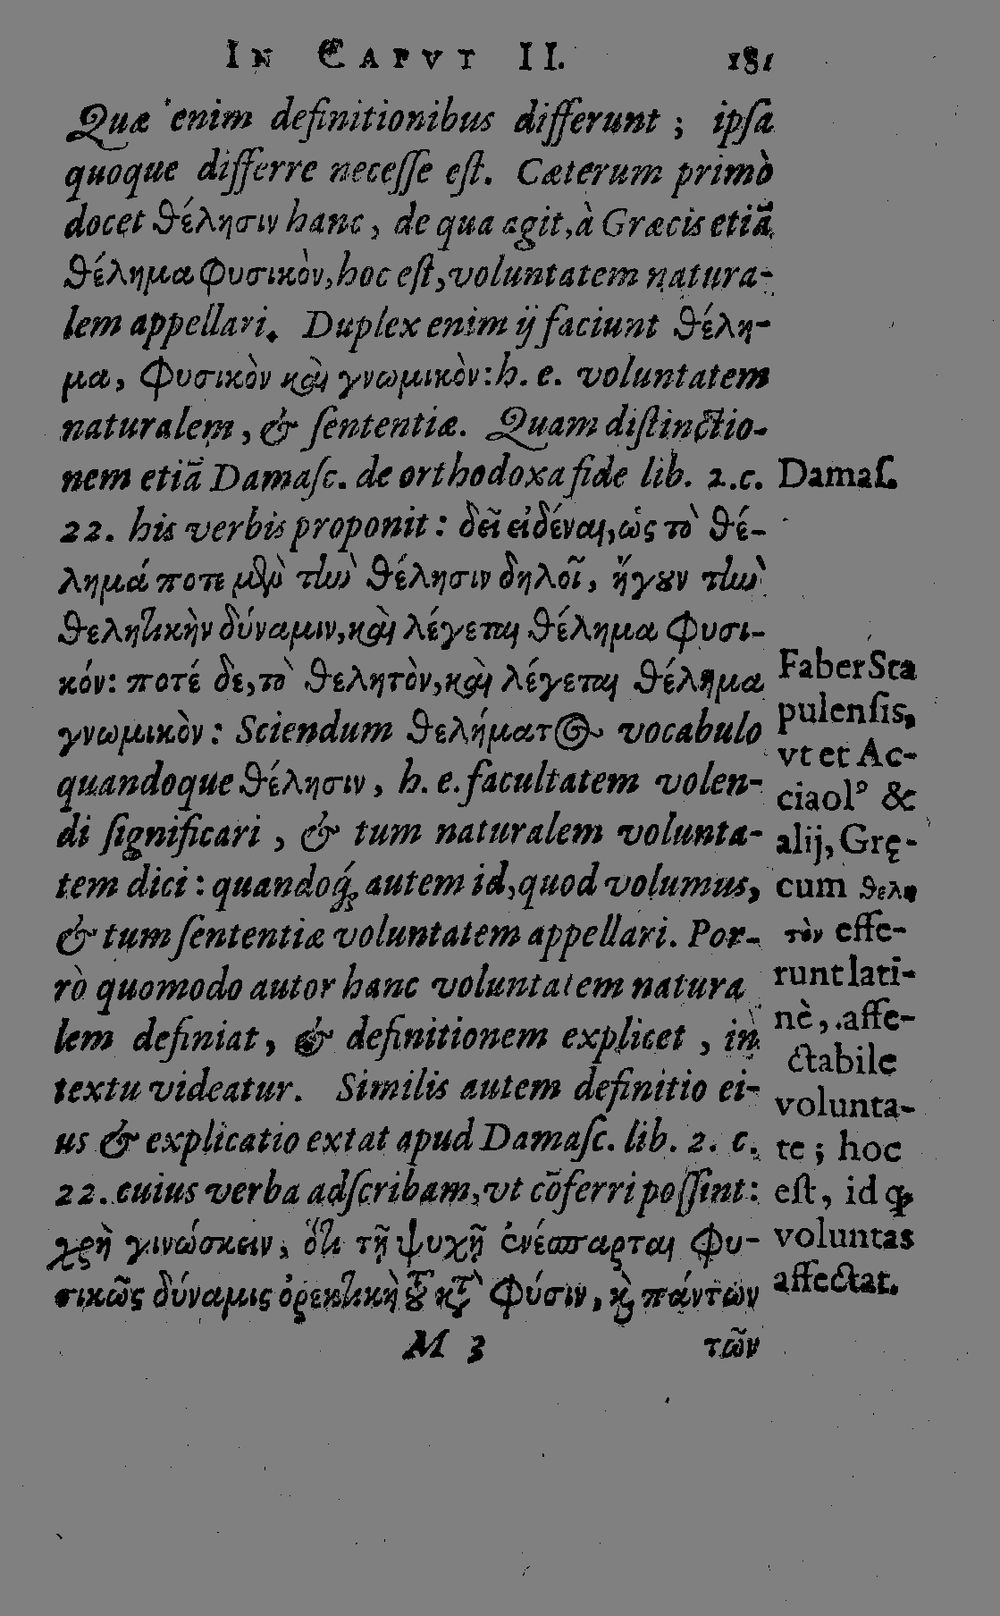 IN CAPVT II. 181
Quæ enim definitionibus differunt ; ipſa
quoque differre neceſſe eſt. Cæterum primò
docet θέλησιν hanc, de qua agit, à Græcis etiã
θέλημα φυσικὸν, hoc eſt, voluntatem natura-
lem appellari. Duplex enim ij faciunt θέλη-
μα, φυσικὸν καὶ γνωμικὸν: h. e. voluntatem
naturalem, & ſententiæ. Quam diſtinctio-
nem etiã Damaſc. de orthodoxa fide lib. 2. c.
22. his verbis proponit: δεῖ εἰδέναι, ὡς τὸ θέ-
λημά ποτε μὲν τὴν θέλησιν δηλοῖ, ἤγουν τὴν
θελητικὴν δύναμιν, καὶ λέγεται θέλημα φυσι-
κόν: ποτέ δε, τὸ θελητὸν, καὶ λέγεται θέλημα
γνωμικὸν: Sciendum θελήματος vocabulo
quandoque θέλησιν, h. e. facultatem volen-
di ſignificari, & tum naturalem volunta-
tem dici: quandoq́ꝫ autem id, quod volumus,
& tum ſententiæ voluntatem appellari. Por-
rò quomodo autor hanc voluntatem natura
lem definiat, & definitionem explicet, in
textu videatur. Similis autem definitio ei-
us & explicatio extat apud Damaſc. lib. 2. c.
22. cuius verba adſcribam, vt cõferri poſſint:
χρὴ γινώσκειν, ὅτι τῇ ψυχῇ ἐνέσπαρται φυ-
σικῶς δύναμις ὀρεκτικὴ τοῦ κατὰ φύσιν, καὶ πάντων
M 3 τῶν
Damaſ.
Faber Sta
pulenſis,
vt et Ac-
ciaolꝰ &
alij, Gręcum
cum θελη
τὸν effe-
runt lati-
nè, affe-
ctabile
volunta-
te ; hoc
eſt, id qꝫ
voluntas
affectat.